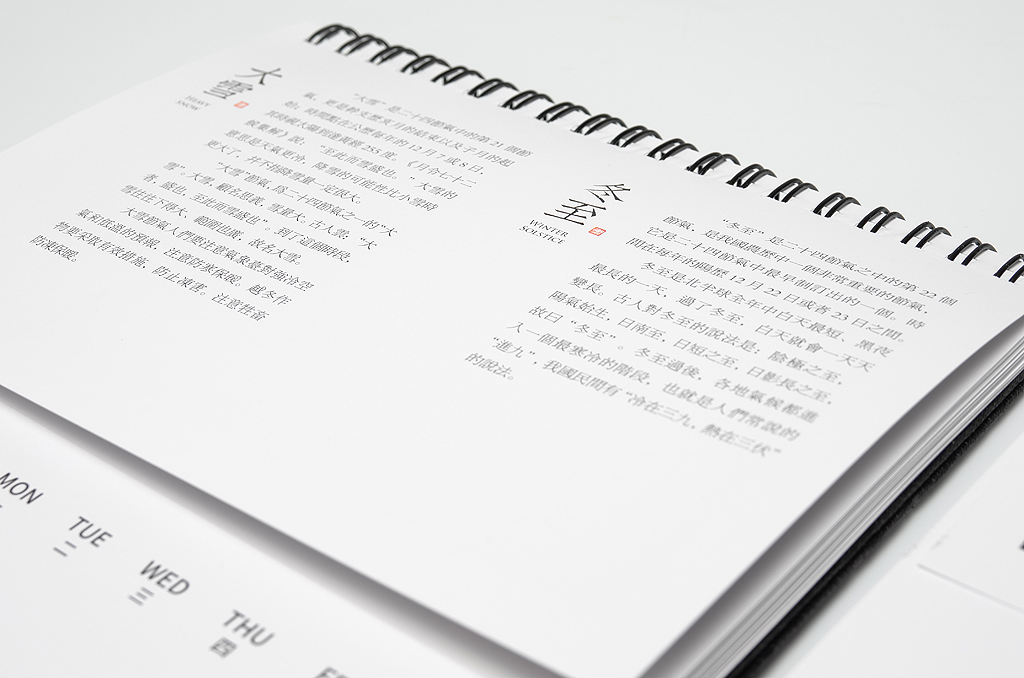 大雪
HEAVY
SNOW
“大雪”是二十四節氣中的第 21 個節
氣，更是幹支歷亥月的結束以及子月的起
始；時間點在公歷每年的 12 月 7 或 8 日，
其時視太陽到達黃經 255 度。《月令七十二
候集解》說：“至此而雪盛也。”大雪的
意思是天氣更冷，降雪的可能性比小雪時
更大了，并不指降雪量一定很大。
“大雪”節氣，爲二十四節氣之一的“大
雪”。大雪，顧名思義，雪量大。古人雲：“大
者，盛也，至此而雪盛也”。到了這個時段，
雪往往下得大、範圍也廣，故名大雪。
大雪節氣人們要注意氣象臺對強冷空
氣和低溫的預報，注意防寒保暖。越冬作
物要采取有效措施，防止凍害。注意牲畜
防凍保暖。
冬至
WINTER
SOLSTICE
“冬至”是二十四節氣之中的第 22 個
節氣，是我國農歷中一個非常重要的節氣，
它是二十四節氣中最早制訂出的一個。時
間在每年的陽歷 12 月 22 日或者 23 日之間。
冬至是北半球全年中白天最短、黑夜
最長的一天，過了冬至，白天就會一天天
變長。古人對冬至的說法是：陰極之至，
陽氣始生，日南至，日短之至，日影長之至，
故曰“冬至”。冬至過後，各地氣候都進
入一個最寒冷的階段，也就是人們常說的
“進九”，我國民間有“冷在三九，熱在三伏”
的說法。
MON
TUE
二
WED
三
THU
四